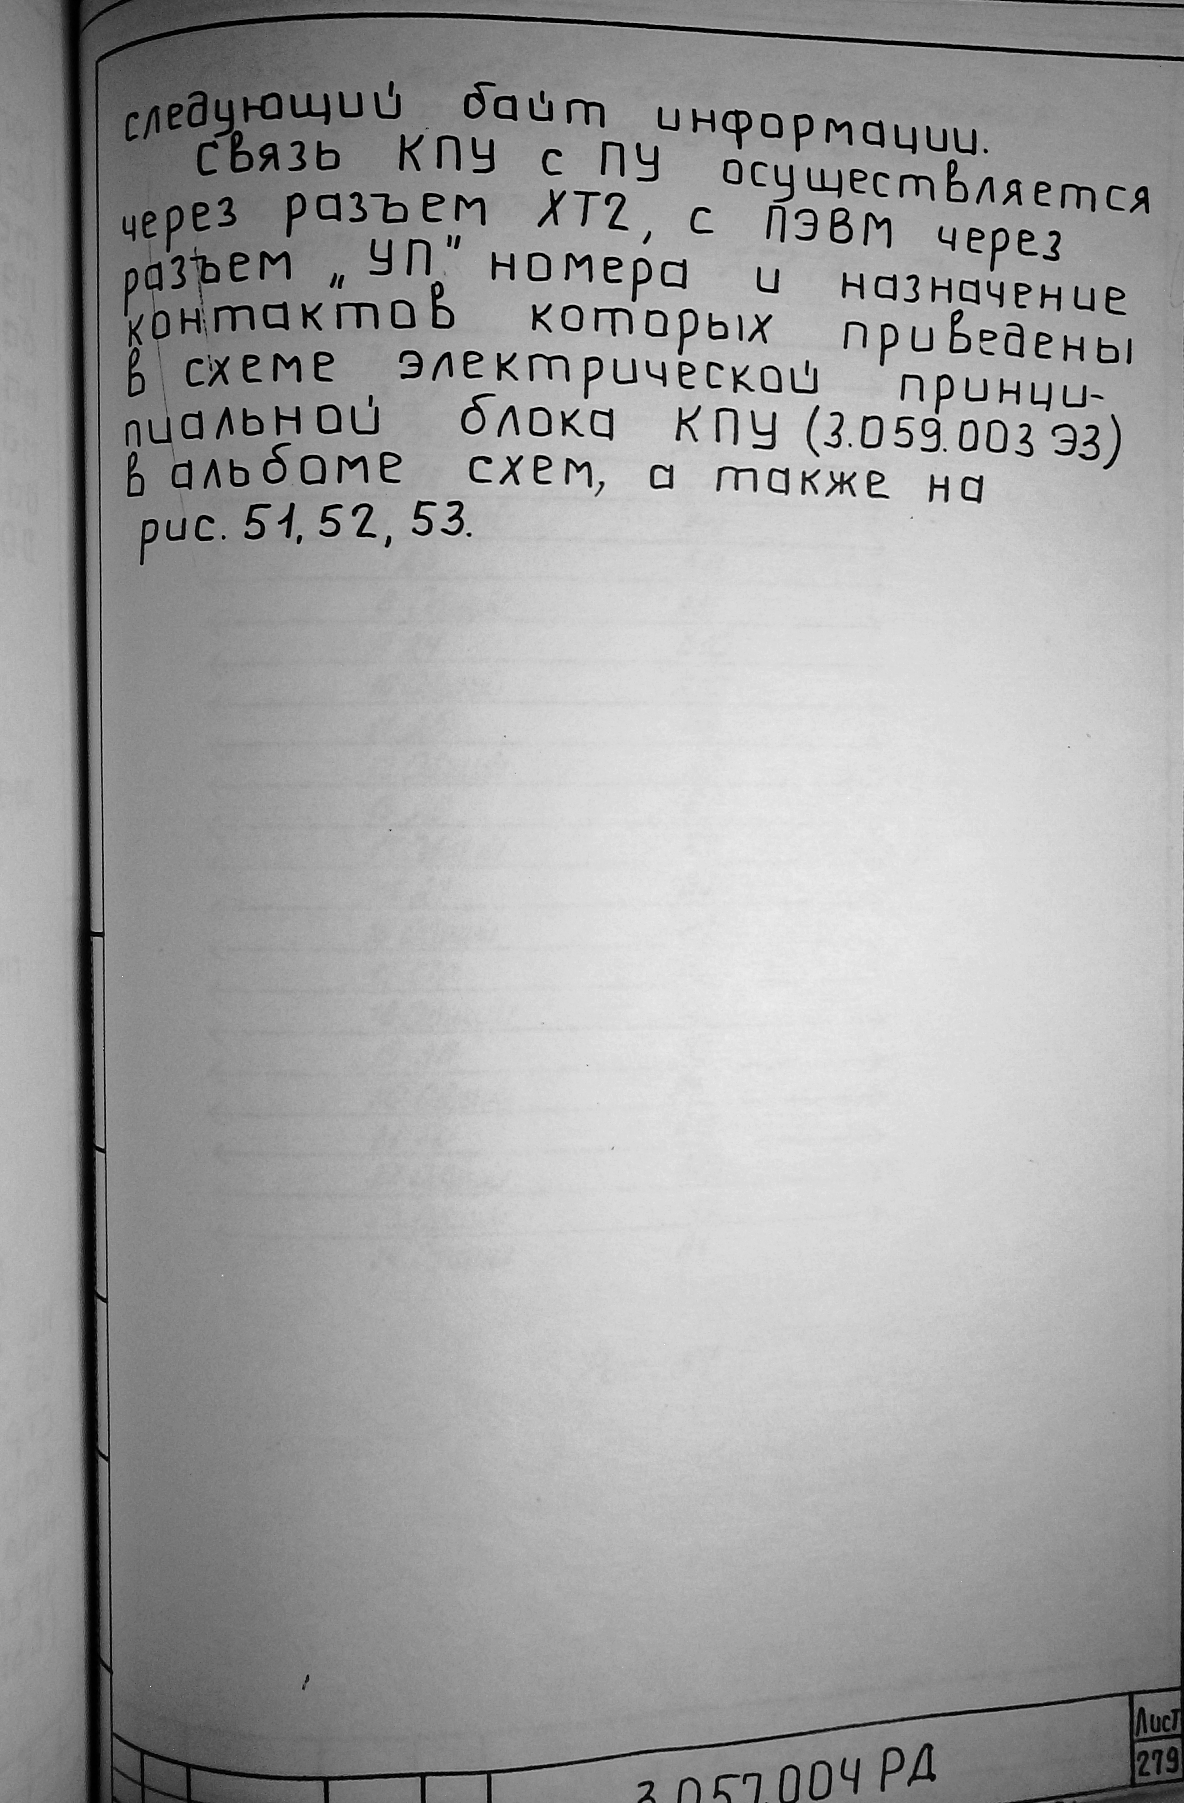 следующий байт информации.
Связь КПУ с ПУ осуществляется
через разъем ХТ2, с ПЭВМ через
разъем „УП" номера и назначение
контактов которых приведены
в схеме электрической принци-
пиальной блока КПУ (3.059.003 ЭЗ)
в альбоме схем, а также на
рис. 51, 52, 53.
Лист
279
3.057.004 РД